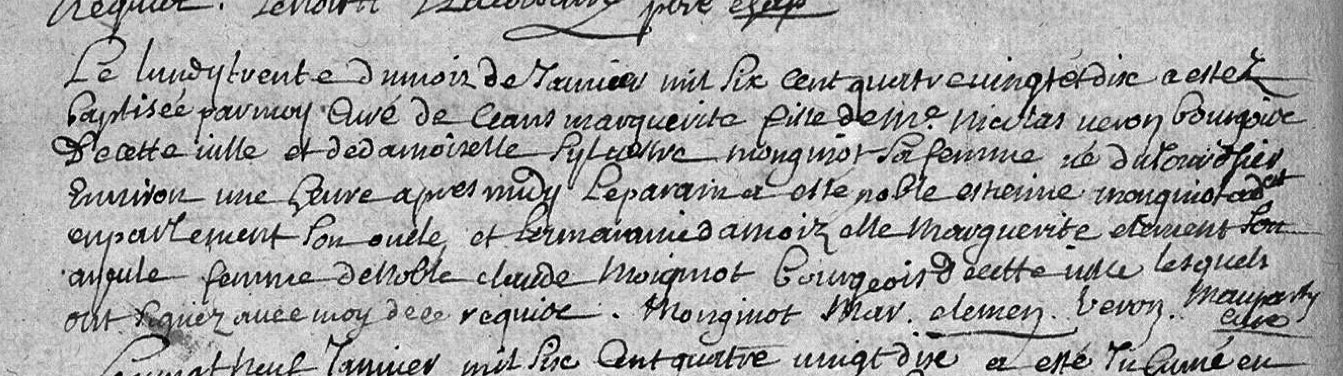 requis. père
Le lundy trente du mois de Janvier mil six cent quatre vingt et dix a estez
baptisée par moy Curé de Ceans marguerite fille de me. nicolas veron bourgois
De cette ville et de damoiselle Sylvestre monginot sa femme né du Jour d'hier
Environ une heure apres midy Le parain a esté noble estienne monginot advt
en parlement son oncle, et la maraine damoizelle Marguerite clement son
ayeule femme de Noble claude Monginot bourgeois De cette ville lesquels
ont signez avec moy de ce requis. Monginot Mar. clemen. Veron. Mauparty
curé
neuf Janvier mil six Cent quatre vingt dix a esté Inhumé en